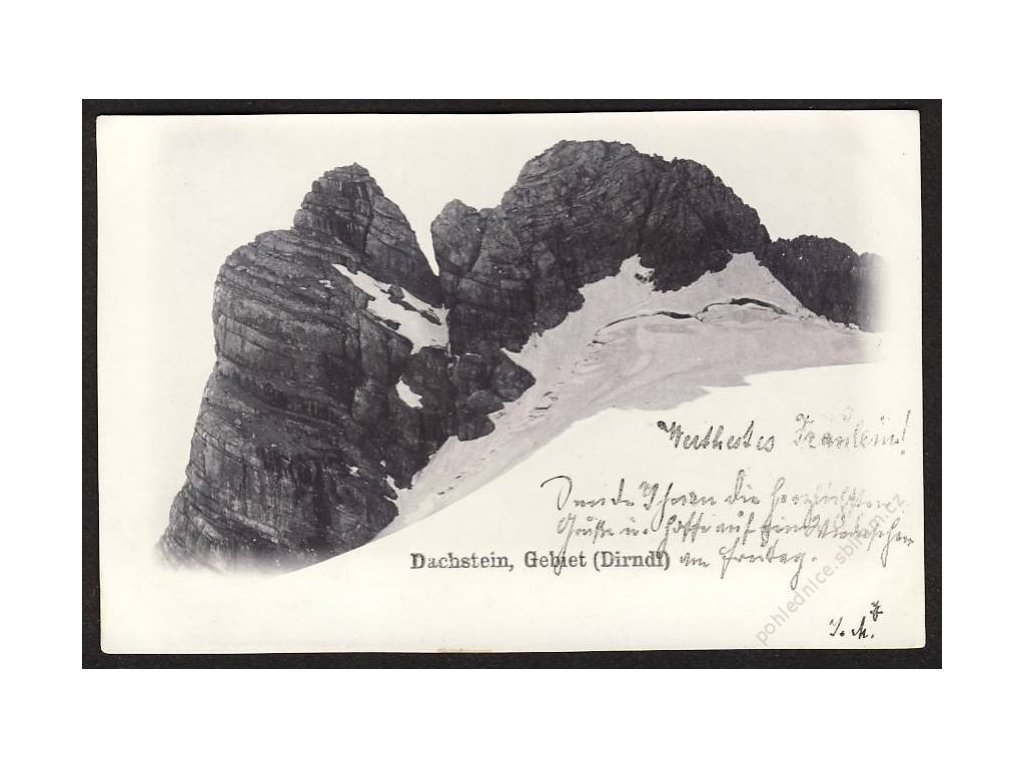 Werthestes Fräulein!
Sende Ihnen die herzlichsten
Grüße u. hoffe auf ein Wiedersehen
Dachstein, Gebiet (Dirndl) am Freitag.
J. M.
pohlednice.sbirky.cz